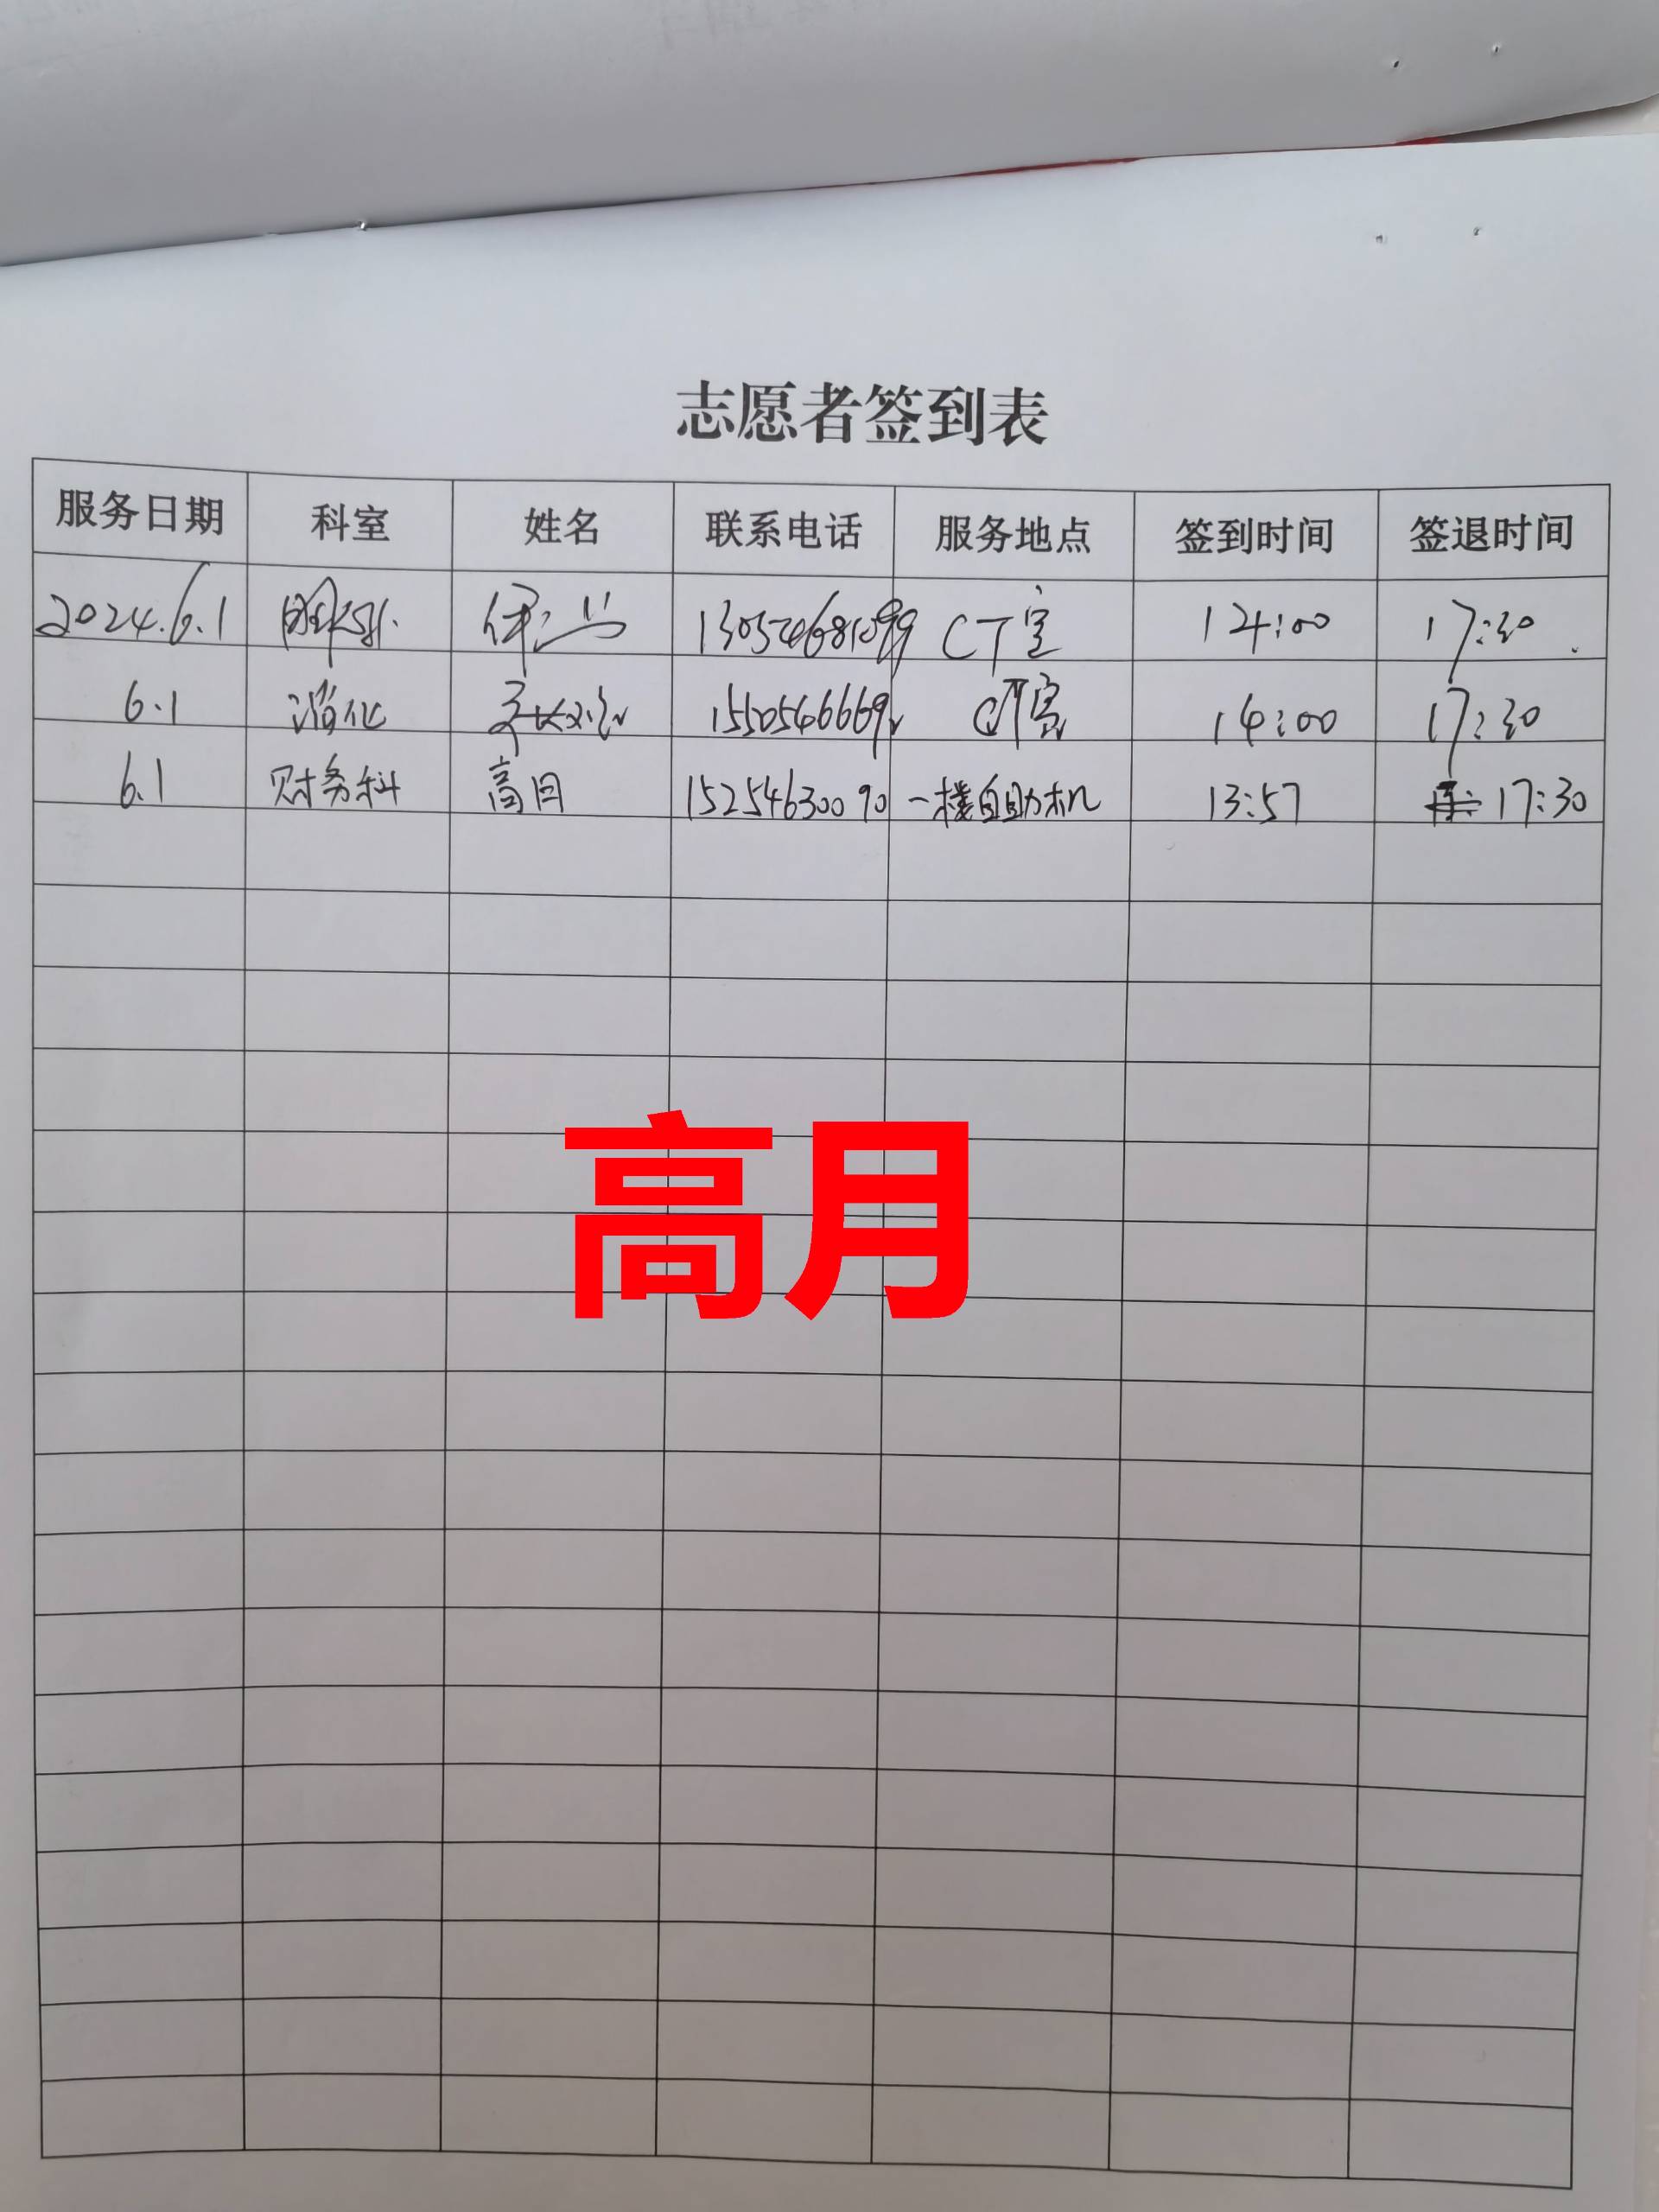 志愿者签到表
服务日期 科室 姓名 联系电话 服务地点 签到时间 签退时间
2024.6.1 CT室 14:00 17:30
6.1 消化 CT室 14:00 17:30
6.1 财务科 高月 15254630090 一楼自助机 13:57 17:30
高月